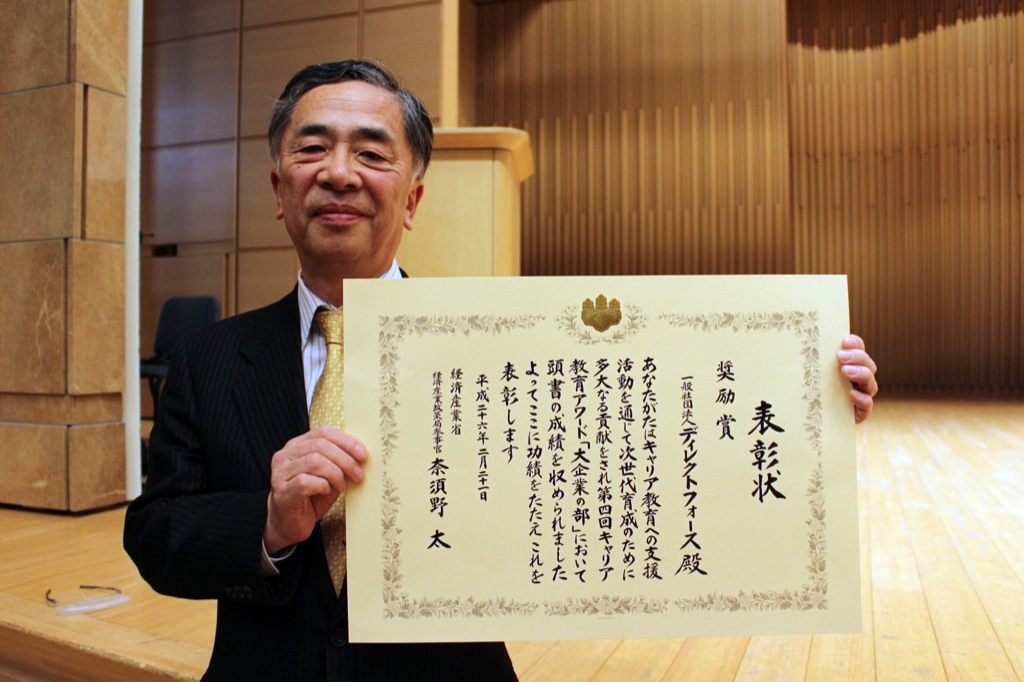 表彰状
奨励賞
一般社団法人ディレクトフォース殿
あなたがたはキャリア教育への支援
活動を通じて次世代育成のために
多大なる貢献をされ第四回キャリア
教育アワード「大企業の部」において
頭書の成績を収められました
よってここに功績をたたえこれを
表彰します
平成二十六年二月二十一日
経済産業省
経済産業政策局参事官 奈須野 太